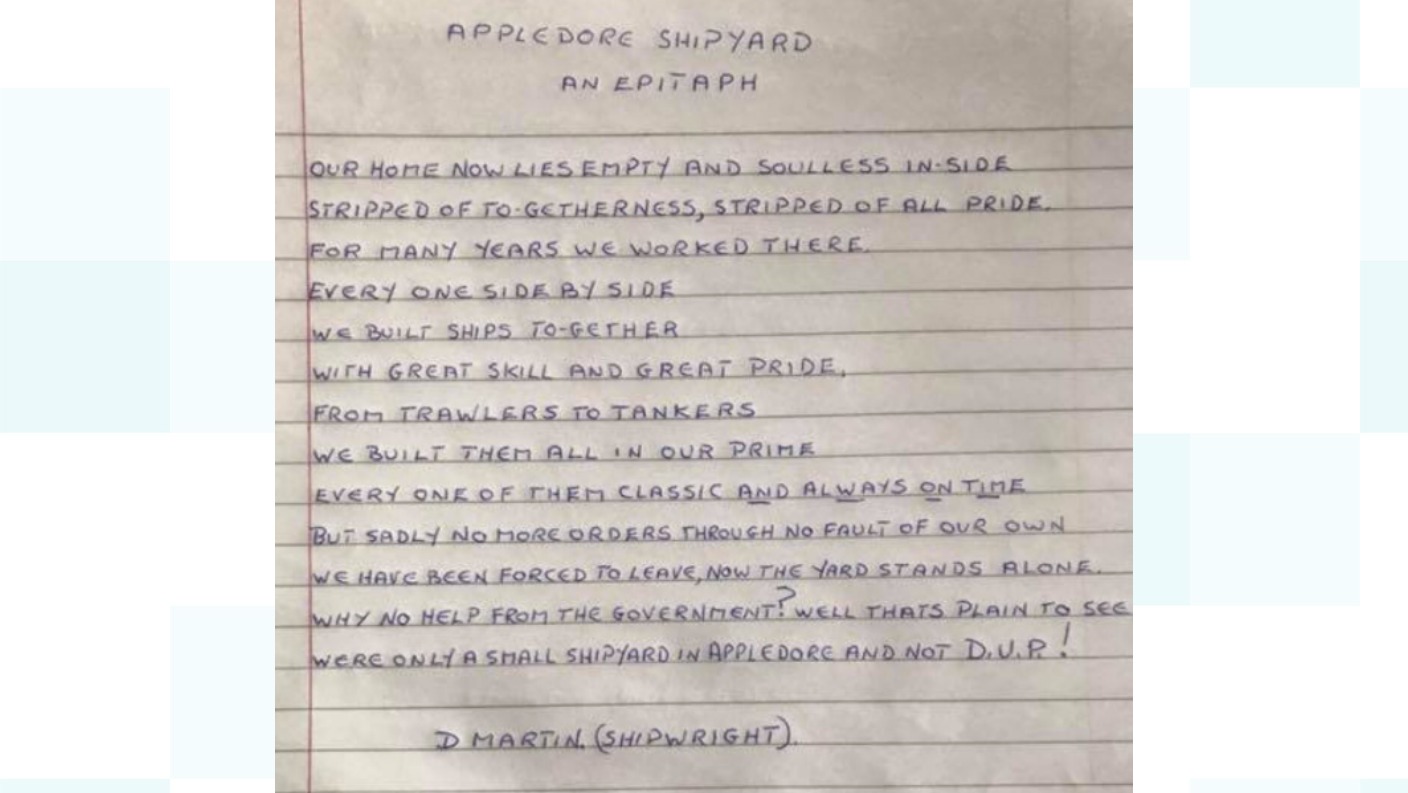 APPLEDORE SHIPYARD
AN EPITAPH
OUR HOME NOW LIES EMPTY AND SOULLESS IN-SIDE
STRIPPED OF TO-GETHERNESS, STRIPPED OF ALL PRIDE.
FOR MANY YEARS WE WORKED THERE.
EVERY ONE SIDE BY SIDE
WE BUILT SHIPS TO-GETHER
WITH GREAT SKILL AND GREAT PRIDE,
FROM TRAWLERS TO TANKERS
WE BUILT THEM ALL IN OUR PRIME
EVERY ONE OF THEM CLASSIC AND ALWAYS ON TIME
BUT SADLY NO MORE ORDERS THROUGH NO FAULT OF OUR OWN
WE HAVE BEEN FORCED TO LEAVE, NOW THE YARD STANDS ALONE.
WHY NO HELP FROM THE GOVERNMENT? WELL THATS PLAIN TO SEE
WERE ONLY A SMALL SHIPYARD IN APPLEDORE AND NOT D.U.P. !
D MARTIN. (SHIPWRIGHT).